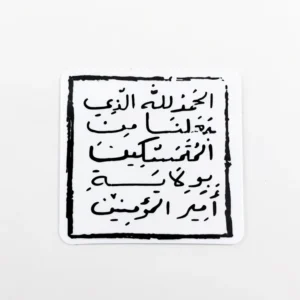 الحَمْدُ لله الّذِي
جَعَلنَا مِن
المُتَمَسّكِينَ
بِوِلَايَةِ
أَمِير المؤمِنِيْن